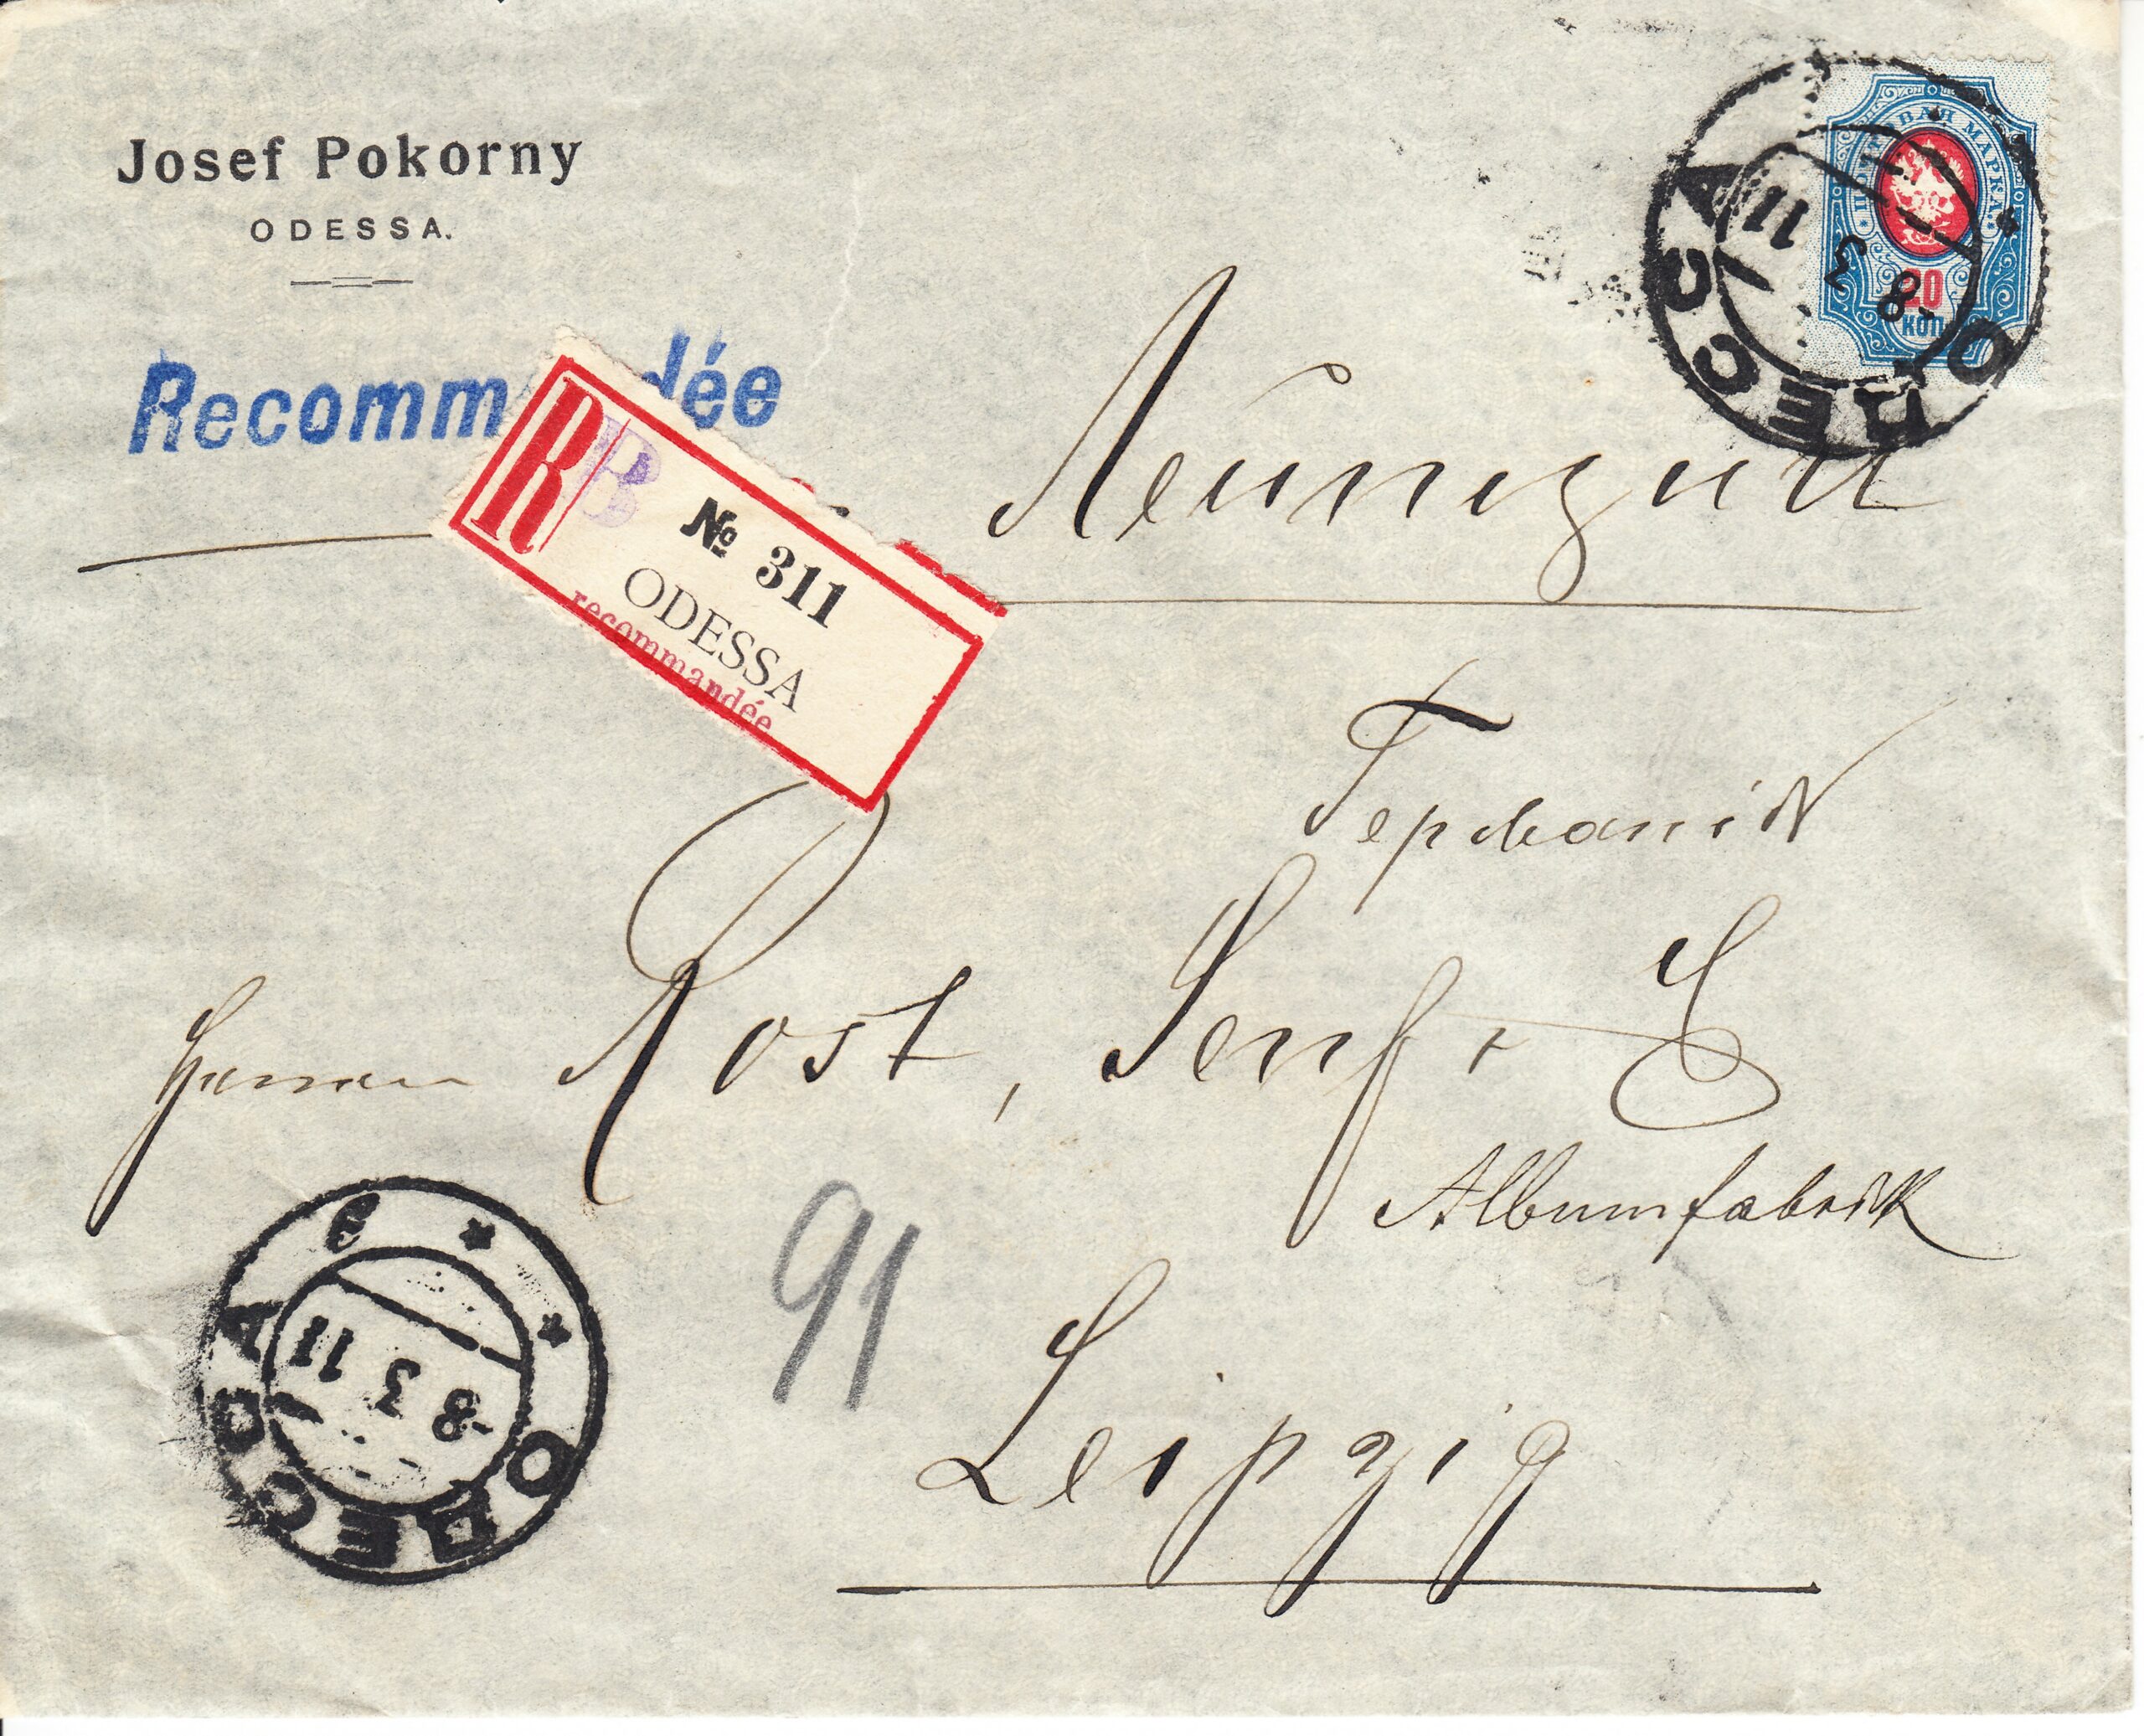 Josef Pokorny
ODESSA.
Recomm dée
R
B
№ 311
ODESSA
recommandée
ПОЧТОВАЯ МАРКА
20
КОП
ОДЕССА
-8 3 11
Лейпцигъ
Германія
Herren Rost, Senf + C
Albumfabrik
91
Leipzig
ОДЕССА
-8 3 11